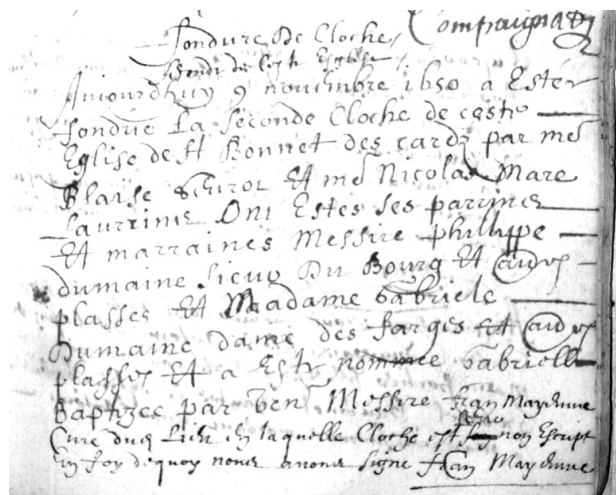 Compaignadz
fondure De Cloche
de Ceste Esglise
Aujourdhuy 9 novembre 1650 a Este
fondue La seconde Cloche de ceste
Eglise de st Bonnet des cardz par me
Blaise Et me Nicolas Mare
Ont Estes ses parrines
Et marraines Messire phillippe
dumaine sieur Du Bourg Et autres
plasses Et Madame Gabriele
Dumaine dame des farges Et autres
plasses Et a Este nommee Gabrielle
Baptizee par ven Messire fran Maydieuve
Cure dud Lieu En laquelle Cloche est non Escript
En foy dequoy nous avons signe fran Maydieuve